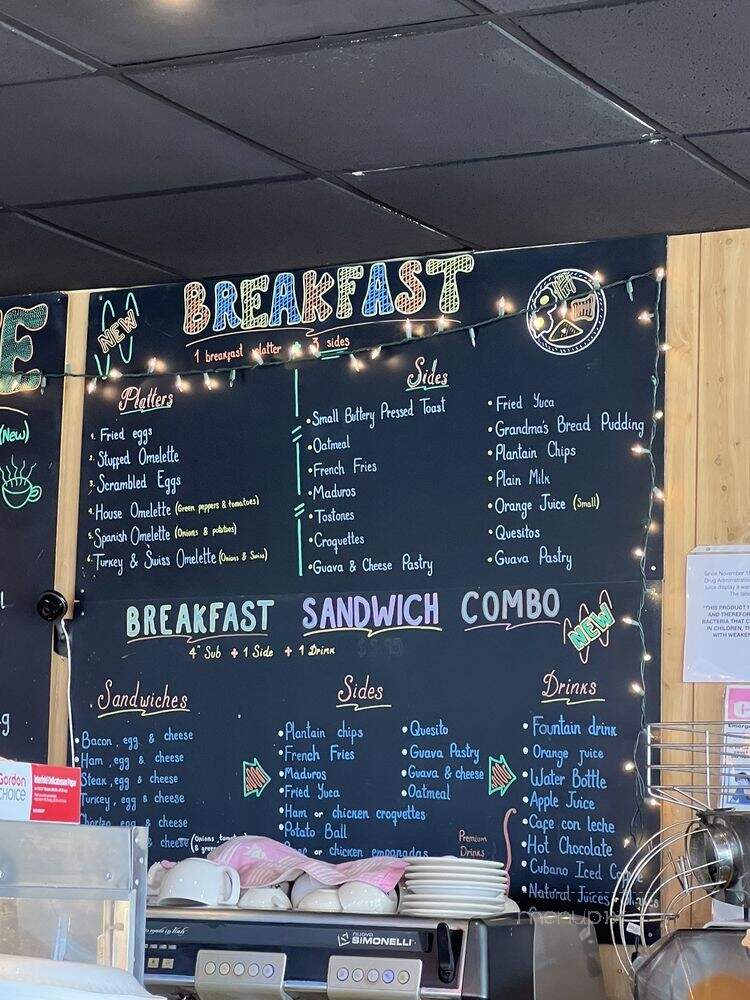 E
(New)
NEW
BREAKFAST
1 breakfast platter + 3 sides
Platters
1. Fried eggs
2. Stuffed Omelette
3. Scrambled Eggs
4. House Omelette (Green peppers & tomatoes)
5. Spanish Omelette (Onions & potatoes)
6. Turkey & Swiss Omelette (Onions & Swiss)
Sides
• Small Buttery Pressed Toast
• Oatmeal
• French Fries
• Maduros
• Tostones
• Croquettes
• Guava & Cheese Pastry
• Fried Yuca
• Grandma's Bread Pudding
• Plantain Chips
• Plain Milk
• Orange Juice (Small)
• Quesitos
• Guava Pastry
BREAKFAST SANDWICH COMBO
NEW
4" Sub + 1 Side + 1 Drink
Sandwiches
• Bacon, egg & cheese
• Ham, egg & cheese
• Steak, egg & cheese
• Turkey, egg & cheese
Chorizo, egg & cheese
& cheese (Onions,
Sides
• Plantain chips
• French Fries
• Maduros
• Fried Yuca
• Ham or chicken croquettes
Potato Ball
or chicken empanadas
• Quesito
• Guava Pastry
• Guava & cheese
• Oatmeal
Premium
Drinks
Drinks
• Fountain drink
• Orange juice
• Water Bottle
• Apple Juice
• Cafe con leche
• Hot Chocolate
• Cubano Iced
• Natural Juices
Since November
Drug Administrati
juice display a wa
The labe
"THIS PRODUCT
AND THEREFOR
BACTERIA THAT C
IN CHILDREN, TH
WITH WEAKEN
Emerge
Gordon
CHOICE
Made in Italy
nuova
SIMONELLI
menupix